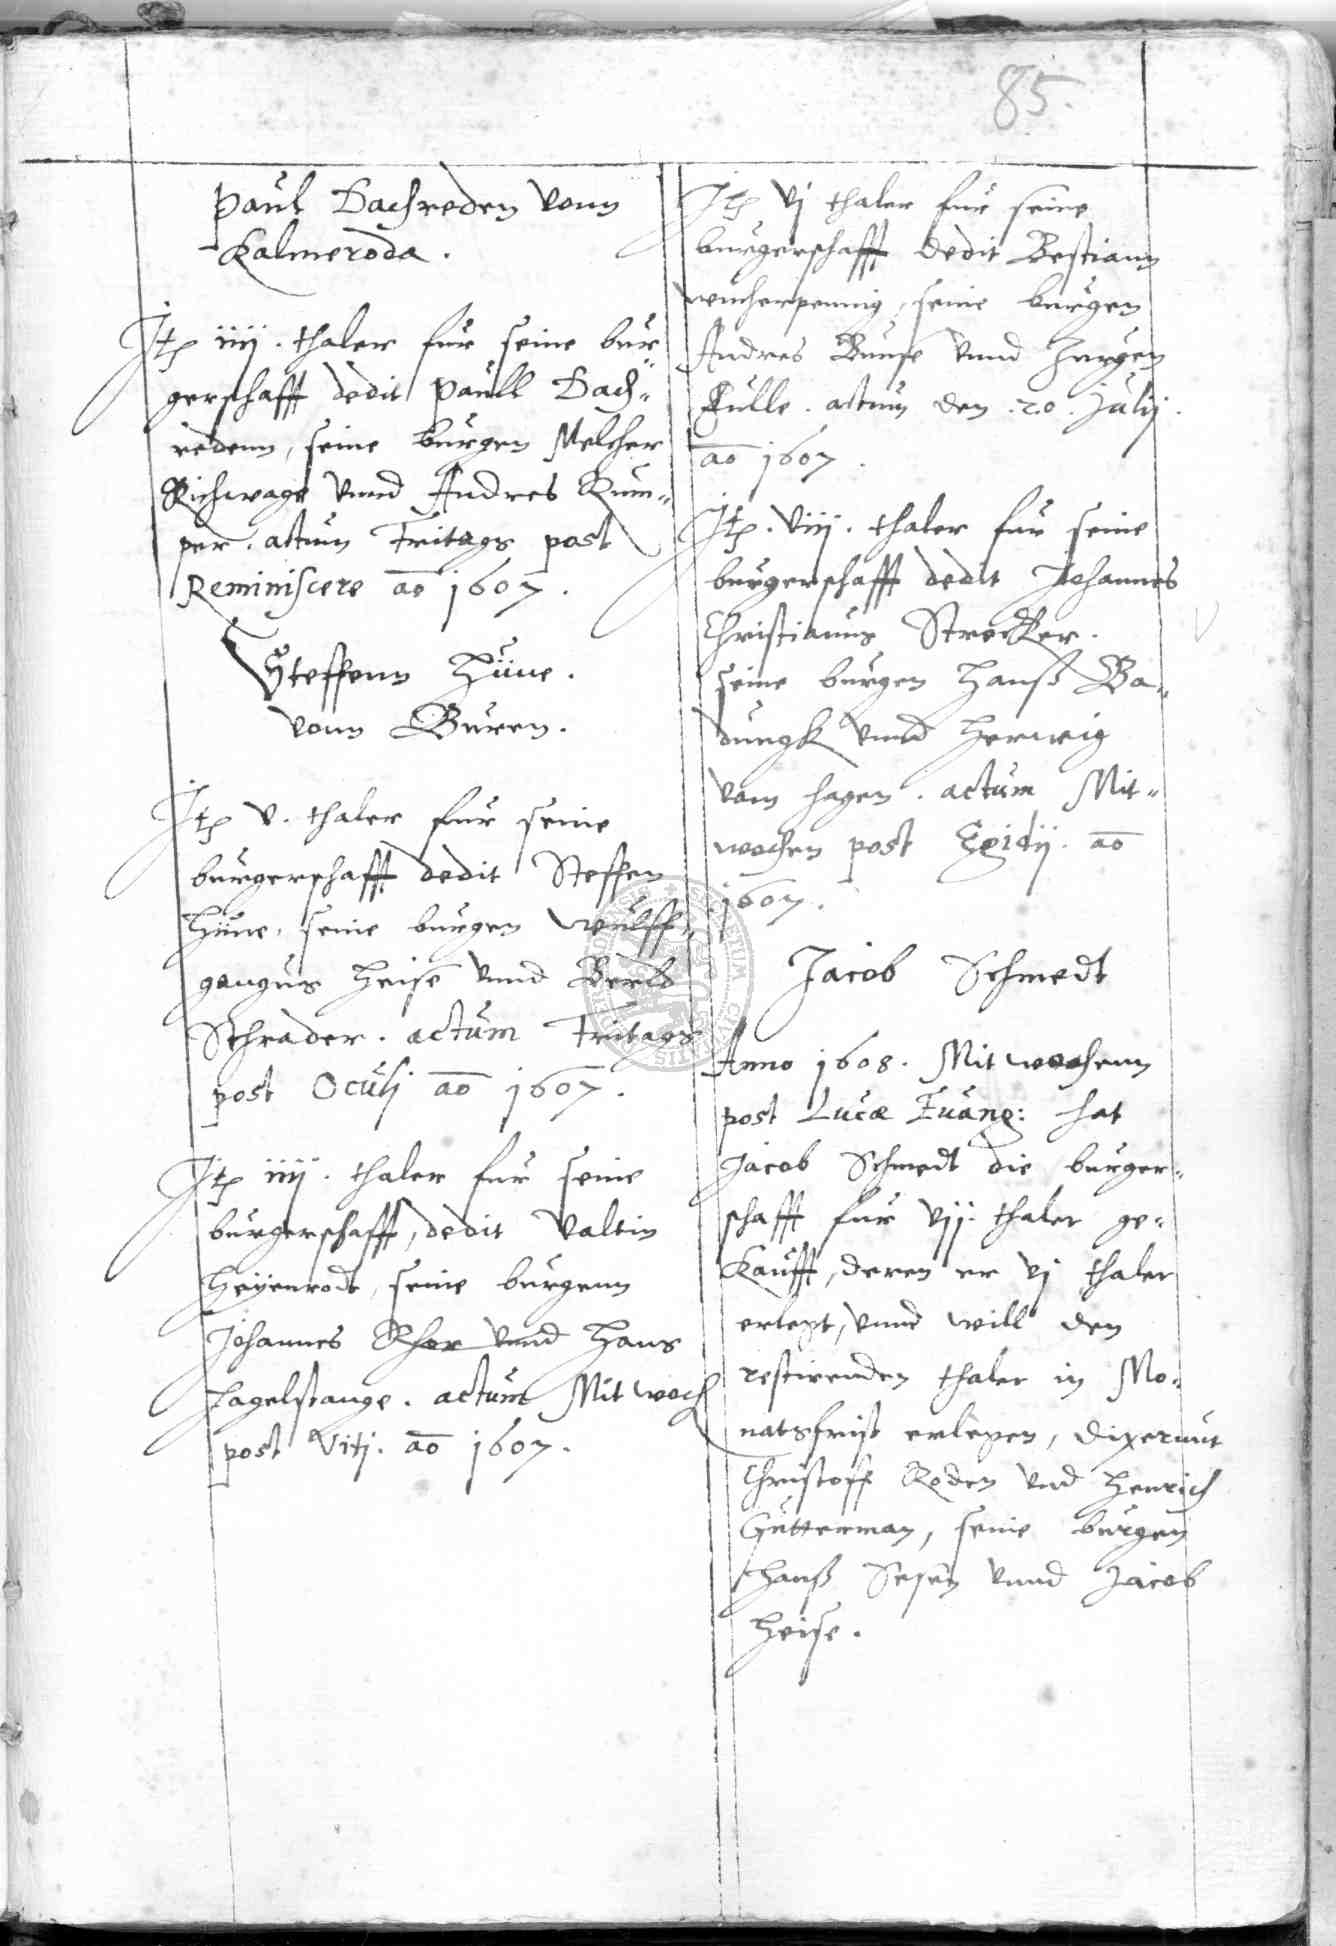 85.
Paul Dachreden vonn
Kalmeroda.
Jtp iiij. thaler fur seine bur
gerschafft dedit Paull Dach„
redenn, seine burgen Melcher
Richwage vnnd Andres Kum„
per. actum Fritags post
Reminiscere ao 1607.
Steffenn Hüne.
vonn Buren.
Jtp v. thaler fur seine
burgerschafft dedit Steffen
Hüne, seine burgen Wulff„
gangus Heise vnnd Berld
Schrader. actum Fritags
post Oculj ao 1607.
Jtp iiij. thaler fur seine
burgerschafft, dedit Valtin
Heyenrodt, seine burgenn
Johannes Rhor vnnd Hans
Hagelstange. actum Mitwoch
post Vitj. ao 1607.
Jtp vj thaler fur seine
burgerschafft dedit Bestiann
wucherpennig, seine burgen
Andres Bunse vnnd Jurgen
Kulle. actum den .20. Julij.
ao 1607.
Jtp. viij. thaler fur seine
burgerschafft dedit Johannes
Christianus Strecker.
seine burgen Hanß Ba„
dungk vnnd Herwig
vom Hagen. actum Mit„
wochen post Egidij. ao
1607.
Jacob Schmedt
Anno 1608. Mitwochenn
post Lucæ Euang: hat
Jacob Schmedt die burger„
schafft fur vij. thaler ge„
kaufft, deren er vj thaler
erlegt, vnnd will den
restirenden thaler in Mo„
natsfrist erlegen, dixerunt
Christoff Roden vnd Henrich
Gutterman, seine burgen
Hanß vnnd Jacob
Heise.